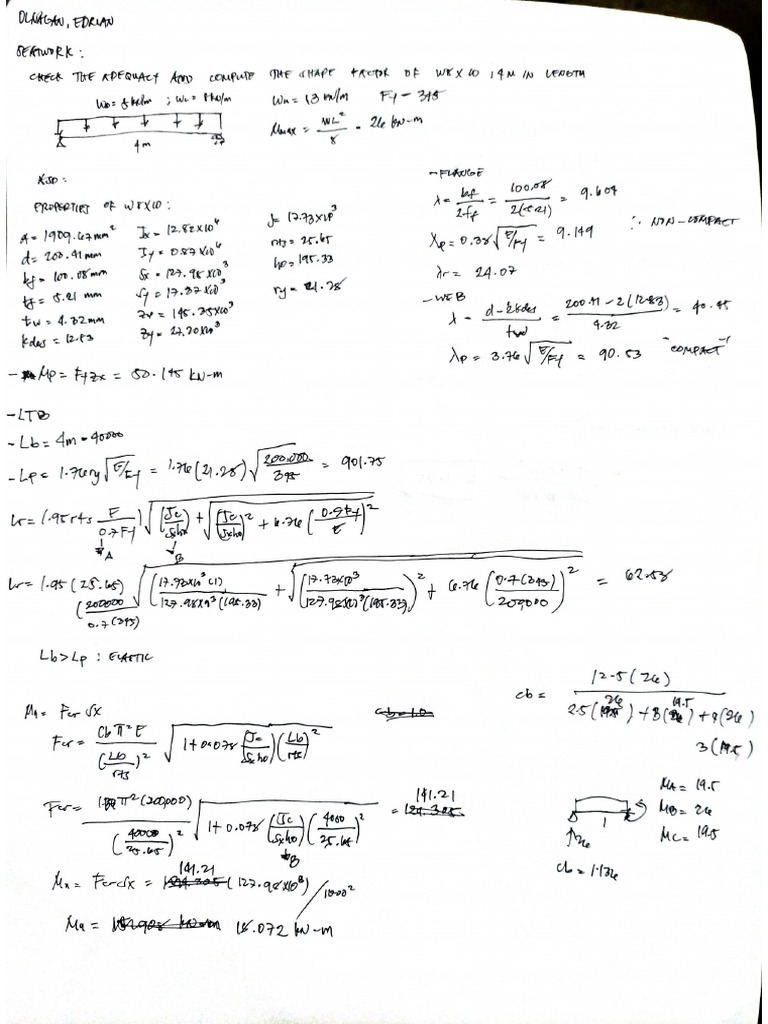 OLNAGAN, EDRIAN
SEATWORK :
CHECK THE ADEQUACY AND COMPUTE THE SHAPE FACTOR OF W8 X 10 , 4 M IN LENGTH
WD = 5 kN/m ; WL = 8 kN/m
Wu = 13 kN/m Fy - 345
4 m
Mmax = WL² / 8 = 26 kN-m
ASD :
PROPERTIES OF W8X10 :
A = 1909.67 mm² Ix = 12.82X10⁶ J = 17.73X10³
d = 200.41 mm Iy = 0.87X10⁶ rts = 25.65
bf = 100.08 mm Sx = 127.98 X10³ ho = 195.33
tf = 5.21 mm Sy = 17.37X10³ ry = 21.28
tw = 4.32 mm Zx = 145.35X10³
kdes = 12.83 Zy = 27.20X10³
- FLANGE
λ = bf / 2tf = 100.08 / 2(5.21) = 9.604
λp = 0.38 √E/Fy = 9.149 ∴ NON-COMPACT
λr = 24.07
- WEB
λ - d - 2kdes / tw = 200.41 - 2(12.83) / 4.32 = 40.45
λp = 3.76 √E/Fy = 90.53 "COMPACT"
- Mp = FyZx = 50.145 kN-m
- LTB
- Lb = 4m = 4000
- Lp = 1.76ry √E/Fy = 1.76 (21.28) √200,000 / 345 = 901.75
Lr = 1.95 rts E / 0.7Fy √(Jc / Sxho) + √(Jc / Sxho)² + 6.76 (0.7Fy / E)²
A B
Lr = 1.95 (25.65) (200000 / 0.7(345)) √(17.73X10³ (1) / 127.98X10³ (195.33)) + √(17.73X10³ / 127.98X10³ (195.33))² + 6.76 (0.7(345) / 200000)² = 62.58
Lb > Lp : ELASTIC
Mn = Fcr Sx
Fcr = Cb π² E / (Lb / rts)² √1 + 0.078 (Jc / Sxho) (Lb / rts)²
Cb = 12.5 (26) / 2.5 (26) + 3 (19.5) + 4 (26) 3 (19.5)
Fcr = π² (200,000) / (4000 / 25.65)² √1 + 0.078 (Jc / Sxho) (4000 / 25.65)² = 141.21
B
MA = 19.5
MB = 26
MC = 19.5
26
Cb = 1.136
Mn = FcrSx = 141.21 (127.98 X10³) / 1000²
Mn = 18.072 kN-m